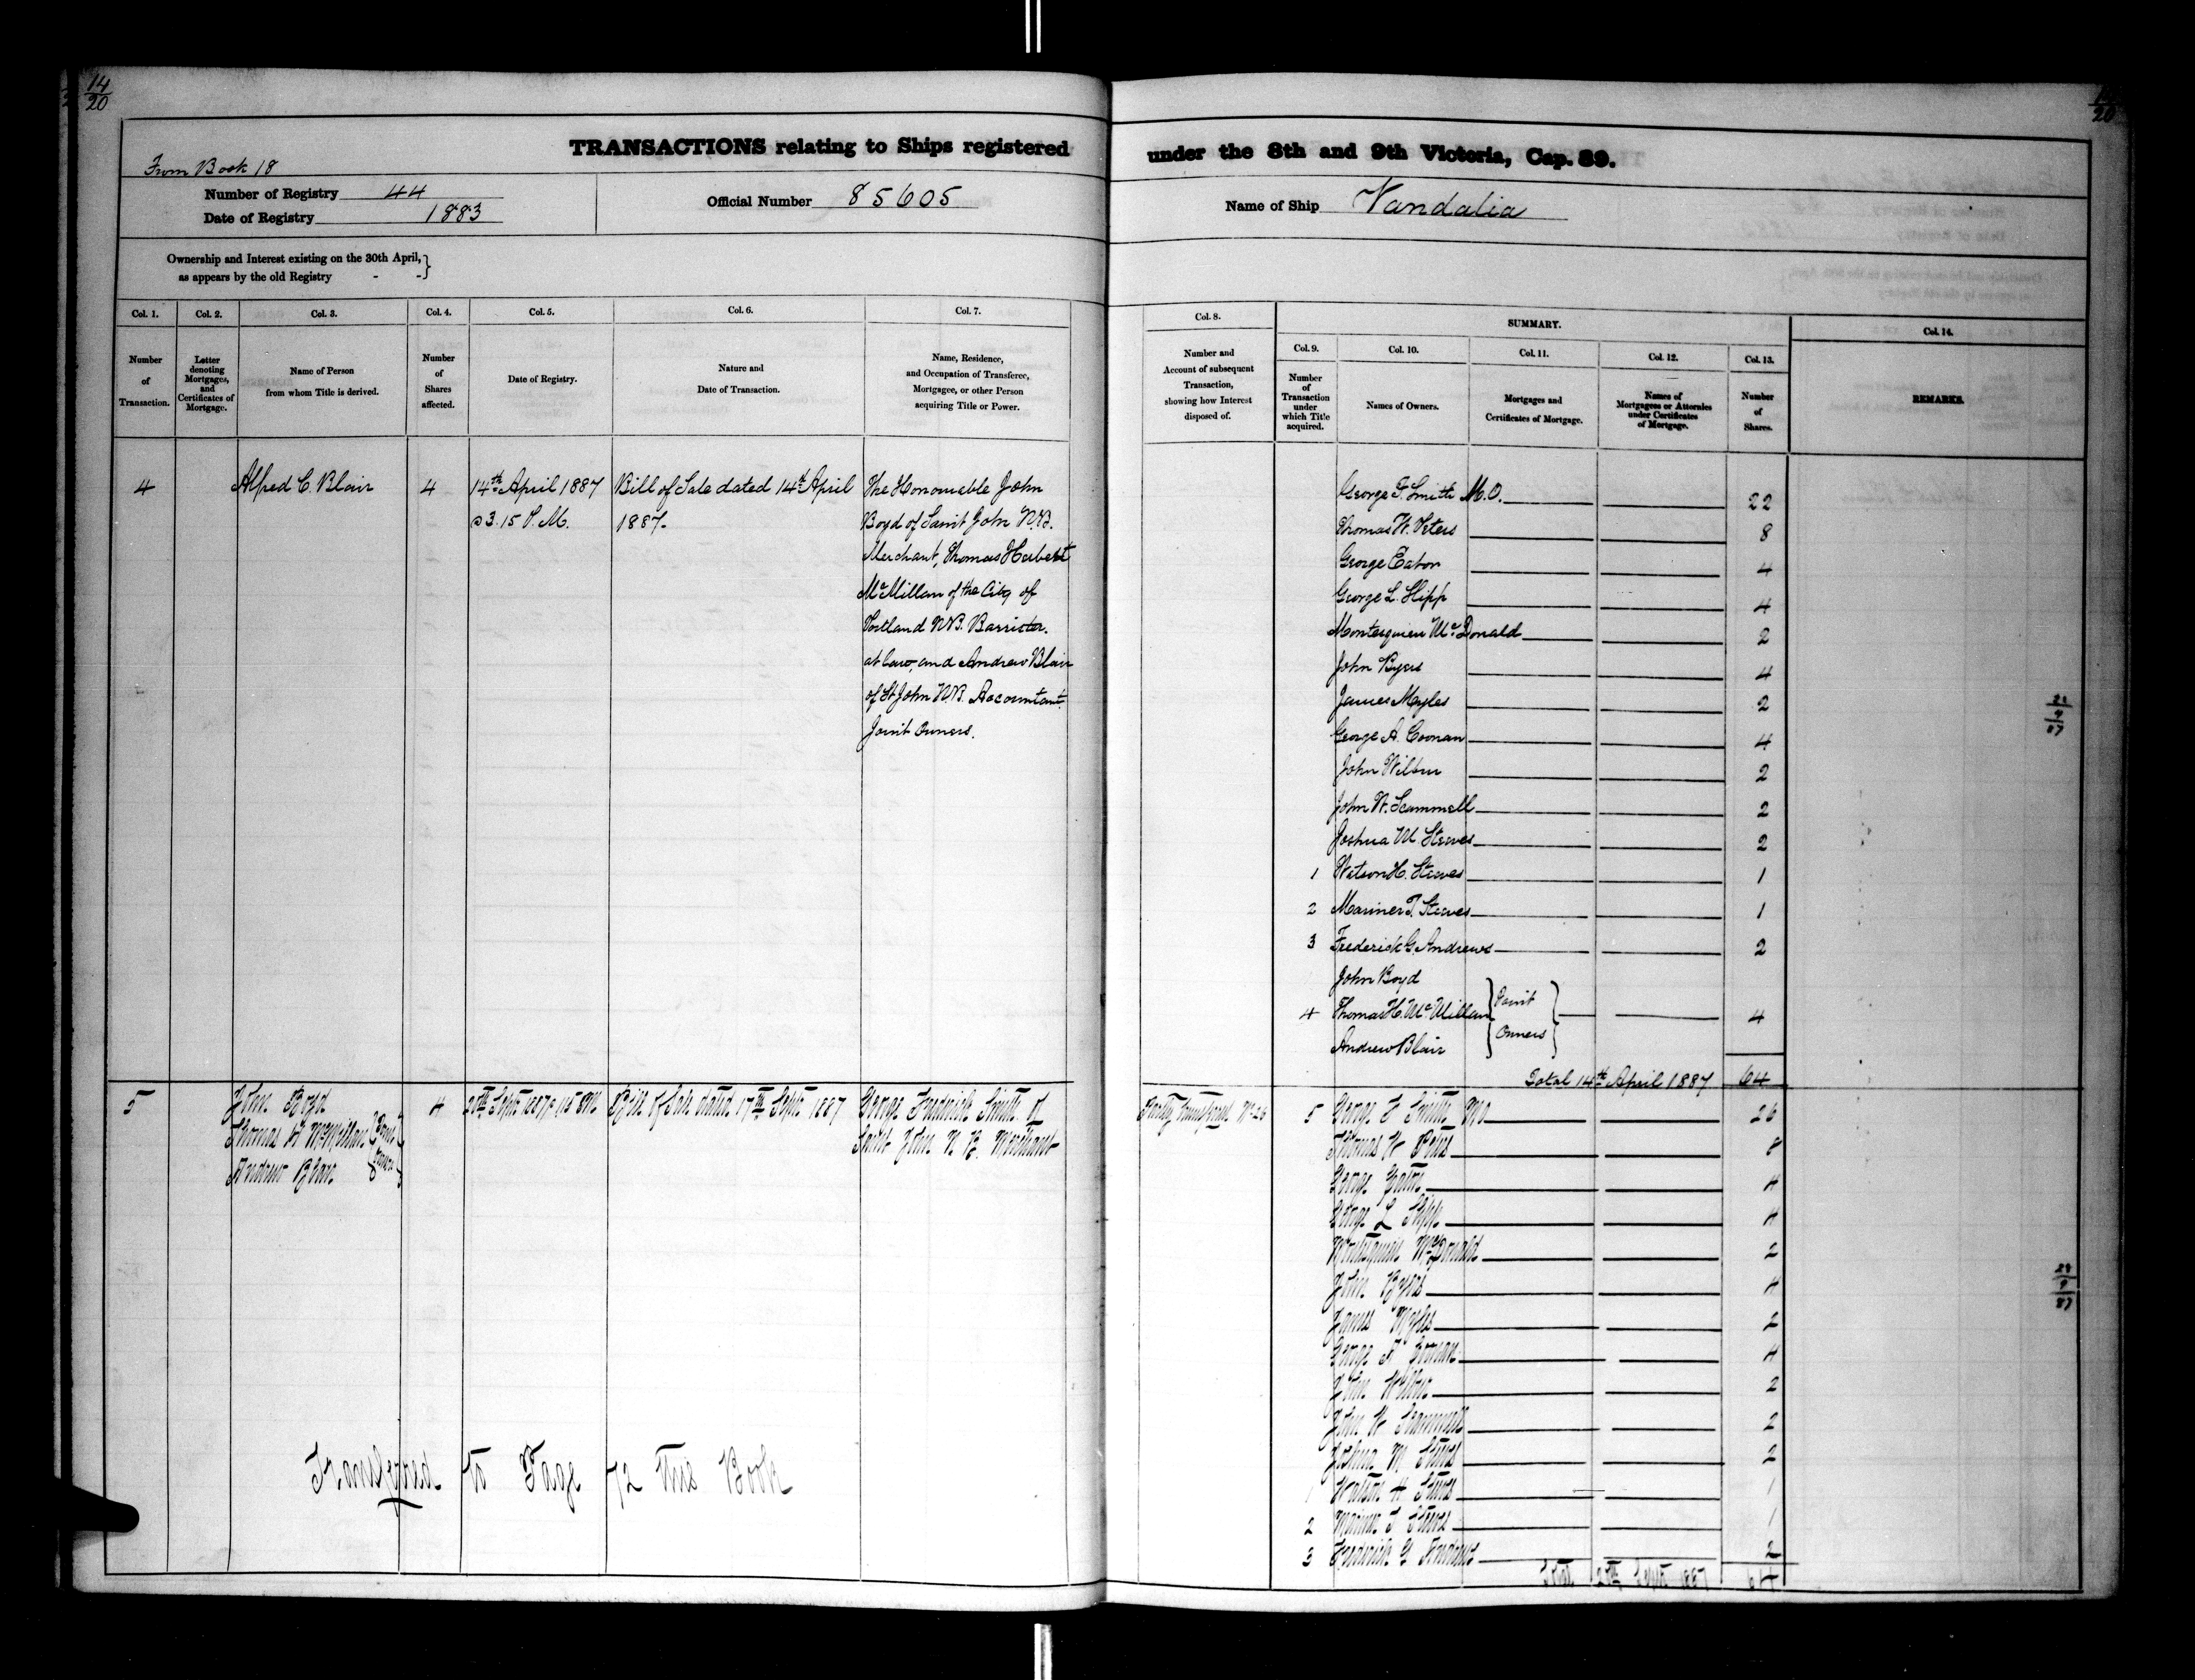 14
20
14
20
TRANSACTIONS relating to Ships registered under the 8th and 9th Victoria, Cap. 89.
From Book 18
Number of Registry 44
Date of Registry 1883
Official Number 85605
Name of Ship Vandalia
Ownership and Interest existing on the 30th April,
as appears by the old Registry - -
Col. 1.
Number
of
Transaction.
Col. 2.
Letter
denoting
Mortgages,
and
Certificates of
Mortgage.
Col. 3.
Name of Person
from whom Title is derived.
Col. 4.
Number
of
Shares
affected.
Col. 5.
Date of Registry.
Col. 6.
Nature and
Date of Transaction.
Col. 7.
Name, Residence,
and Occupation of Transferee,
Mortgagee, or other Person
acquiring Title or Power.
Col. 8.
Number and
Account of subsequent
Transaction,
showing how Interest
disposed of.
SUMMARY.
Col. 9.
Number
of
Transaction
under
which Title
acquired.
Col. 10.
Names of Owners.
Col. 11.
Mortgages and
Certificates of Mortgage.
Col. 12.
Names of
Mortgagees or Attornies
under Certificates
of Mortgage.
Col. 13.
Number
of
Shares.
Col. 14.
REMARKS.
4
Alfred C. Blair
4
14th April 1887
@ 3.15 P.M.
Bill of Sale dated 14th April
1887.
The Honourable John
Boyd of Saint John N.B.
Merchant, Thomas Herbert
McMillan of the City of
Portland N.B. Barrister.
at law and Andrew Blair
of St John N.B. Accountant
Joint Owners.
George F. Smith M.O. 22
Thomas W. Peters 8
George Eaton 4
George L. Slipp 4
Montesquieu McDonald 2
John Byers 4
James Myles 2
George A. Coonan 4
John Wilbur 2
John W. Scammell 2
Joshua M Steeves 2
1 Watson H. Steeves 1
2 Mariner T. Steeves 1
3 Frederick G. Andrews 2
John Boyd
4 Thomas H. McMillan Joint Owners 4
Andrew Blair
Total 14th April 1887 64
5
John Boyd
Thomas H McMillan Joint Owners
Andrew Blair
4
20th Sept 1887
Bill of Sale dated 17th Sept 1887
George Frederick Smith of
Saint John N B. Merchant
5 George F Smith MO 26
Thomas W Peters 8
George Eaton 4
George L Slipp 4
Montesquieu McDonald 2
John Byers 4
James Myles 2
George A Coonan 4
John Wilbur 2
John W Scammell 2
Joshua M Steeves 2
1 Watson H Steeves 1
2 Mariner T Steeves 1
3 Frederick G Andrews 2
Total 20th Sept 1887 64
Transferred to Page 72 this Book